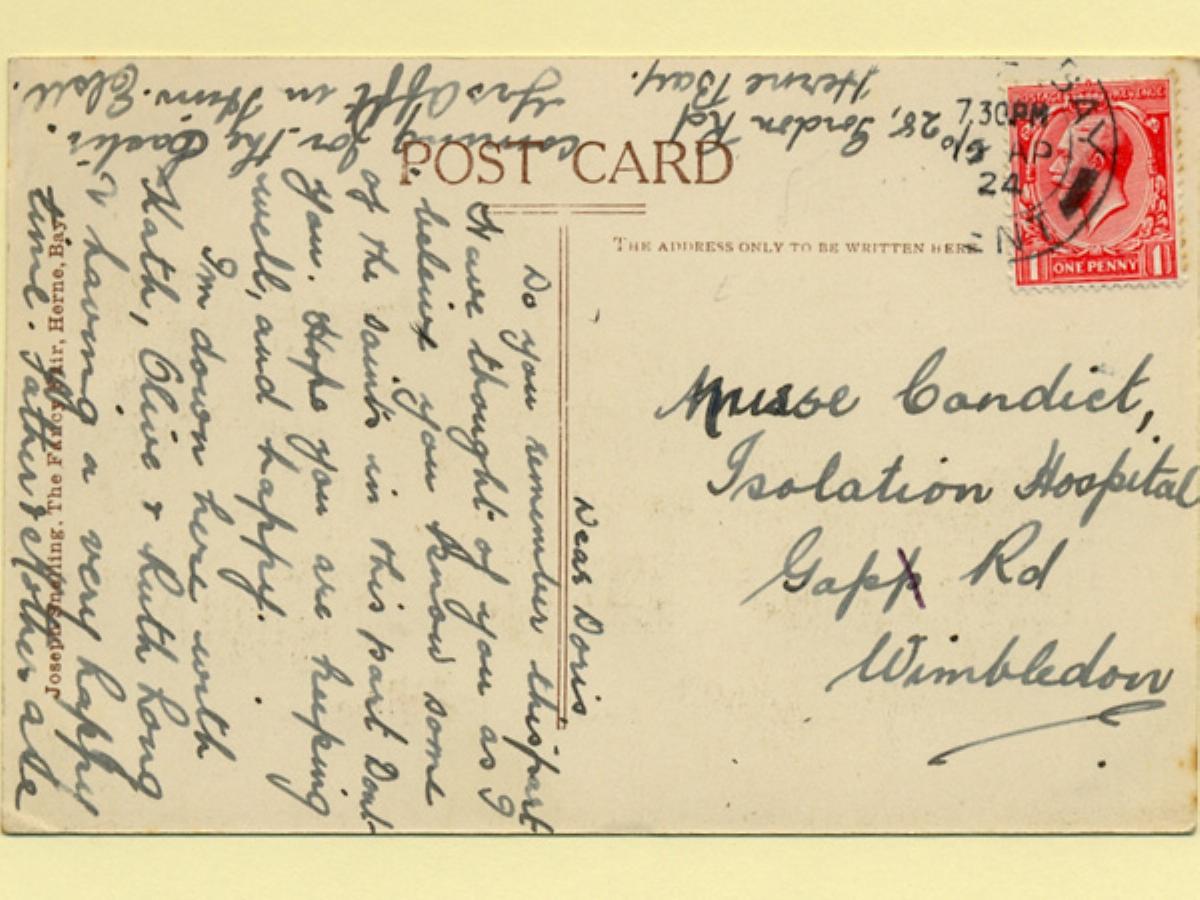 POST CARD
THE ADDRESS ONLY TO BE WRITTEN HERE.
7.30 PM
AP
24
ENT
POSTAGE REVENUE
1 ONE PENNY 1
Nurse Condict,
Isolation Hospital
Gapp Rd
Wimbledon
Joseph Snelling, The Fancy Fair, Herne, Bay
28, Gordon Rd
Herne Bay.
Dear Doris
Do you remember this part
Have thought of you as I
believe you know some
of the saints in this part Dont
you. Hope you are keeping
well, and happy.
Im down here with
Kath, Olive & Ruth Long
& having a very happy
time. Father & Mother are
coming for the Easter
Yrs Afft in Him. Elsie.